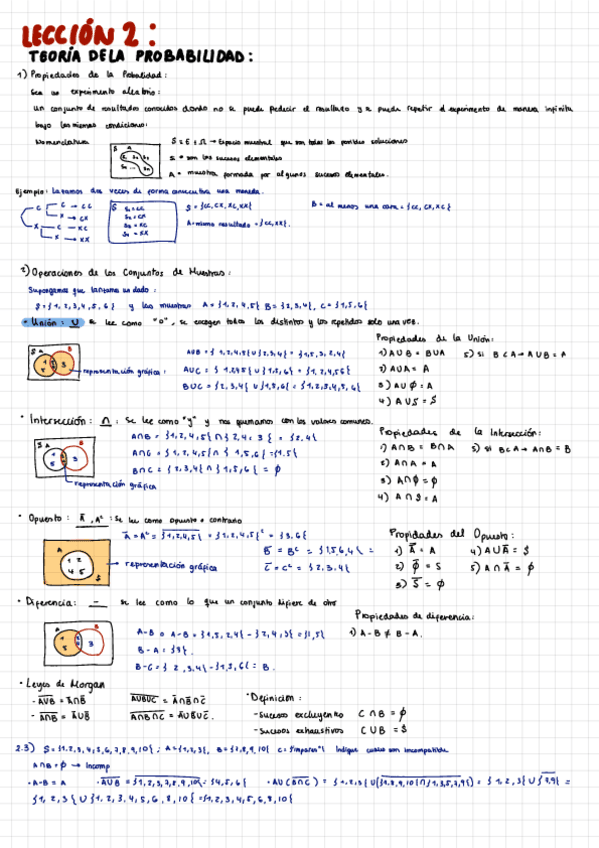 LECCIÓN 2:
TEORÍA DE LA PROBABILIDAD:
1) Propiedades de la Probalidad:
Sea un experimento aleatorio:
Un conjunto de resultados conocidos donde no se puede predecir el resultado y se puede repetir el experimento de manera infinita
bajo las mismas condiciones:
Nomenclatura
S = E = Ω → Espacio muestral que son todas las posibles soluciones
S = son los sucesos elementales
A = muestra formada por algunos sucesos elementales.
Ejemplo: Lanzamos dos veces de forma consecutiva una moneda.
C C → CC
X → CX
X C → XC
X → XX
S = {CC, CX, XC, XX}
A = mismo resultado = {CC, XX}.
B = al menos una cara = {CC, CX, XC}
2) Operaciones de los Conjuntos de Muestras:
Supongamos que lanzamos un dado:
S = {1, 2, 3, 4, 5, 6} y las muestras A = {1, 2, 4, 5} B = {2, 3, 4}, C = {1, 5, 6}
• Unión: U se lee como "o", se escogen todos los distintos y los repetidos solo una vez.
representación gráfica:
AUB = {1, 2, 4, 5} U {2, 3, 4} = {1, 5, 3, 2, 4}
AUC = {1, 2, 4, 5} U {1, 5, 6} = {1, 2, 4, 5, 6}
BUC = {2, 3, 4} U {1, 5, 6} = {1, 2, 3, 4, 5, 6}
Propiedades de la Unión:
1) A U B = B U A 5) si B ⊂ A → A U B = A
2) A U A = A
3) A U ∅ = A
4) A U S = S
• Intersección: ∩: Se lee como "y" y nos quedamos con los valores comunes.
A∩B = {1, 2, 4, 5} ∩ {2, 4, 3} = {2, 4}
A∩C = {1, 2, 4, 5} ∩ {1, 5, 6} = {1, 5}
B∩C = {2, 3, 4} ∩ {1, 5, 6} = ∅
representación gráfica
Propiedades de la Intersección:
1) A∩B = B∩A 5) si B ⊂ A → A∩B = B
2) A∩A = A
3) A∩∅ = ∅
4) A∩S = A
• Opuesto: Ā, Aᶜ: Se lee como opuesto o contrario
Ā = Aᶜ = {1, 2, 4, 5}ᶜ = {3, 6}
B̄ = Bᶜ = {1, 5, 6}
C̄ = Cᶜ = {2, 3, 4}
representación gráfica
Propidades del Opuesto:
2) ∅̄ = S 4) A U Ā = S
3) S̄ = ∅ 5) A ∩ Ā = ∅
• Diferencia: - se lee como lo que un conjunto difiere de otro
representación gráfica
A-B = {1, 5, 2, 4} - {2, 4, 3} = {1, 5}
B-A = {3}.
B-C = {2, 3, 4} - {1, 5, 6} = B.
Propiedades de diferencia:
1) A-B ≠ B-A.
• Leyes de Morgan
•Definicion:
- Sucesos excluyentes C ∩ B = ∅
- Sucesos exhaustivos C U B = S
2.3) S = {1, 2, 3, 4, 5, 6, 7, 8, 9, 10}; A = {1, 2, 3}, B = {7, 8, 9, 10} C = "impares"
A∩B = ∅ → Incomp
• A-B = A